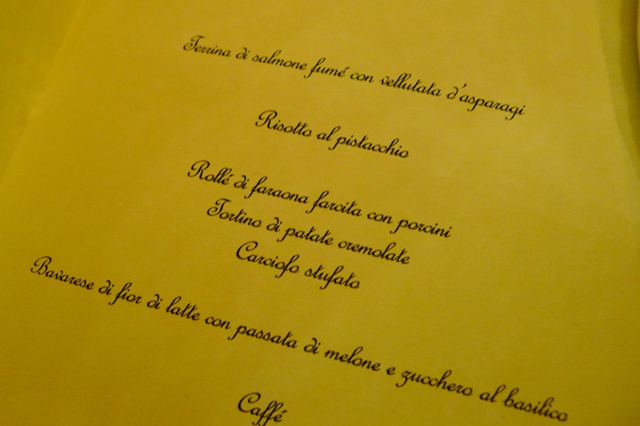 Terrina di salmone fumé con vellutata d'asparagi
Risotto al pistacchio
Rollé di faraona farcita con porcini
Tortino di patate cremolate
Carciofo stufato
Bavarese di fior di latte con passata di melone e zucchero al basilico
Caffé